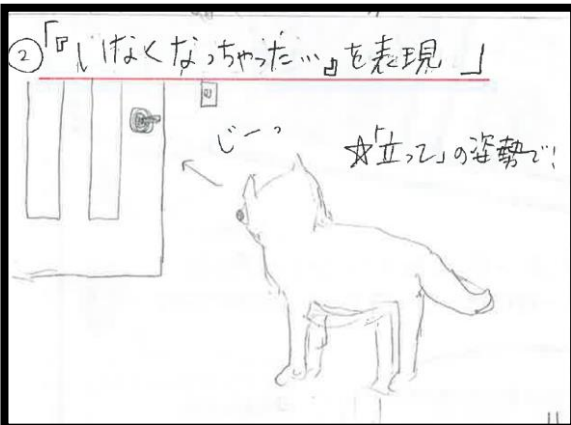 ②「『いなくなっちゃった…』を表現」
じーっ
☆「立って」の姿勢で!
11